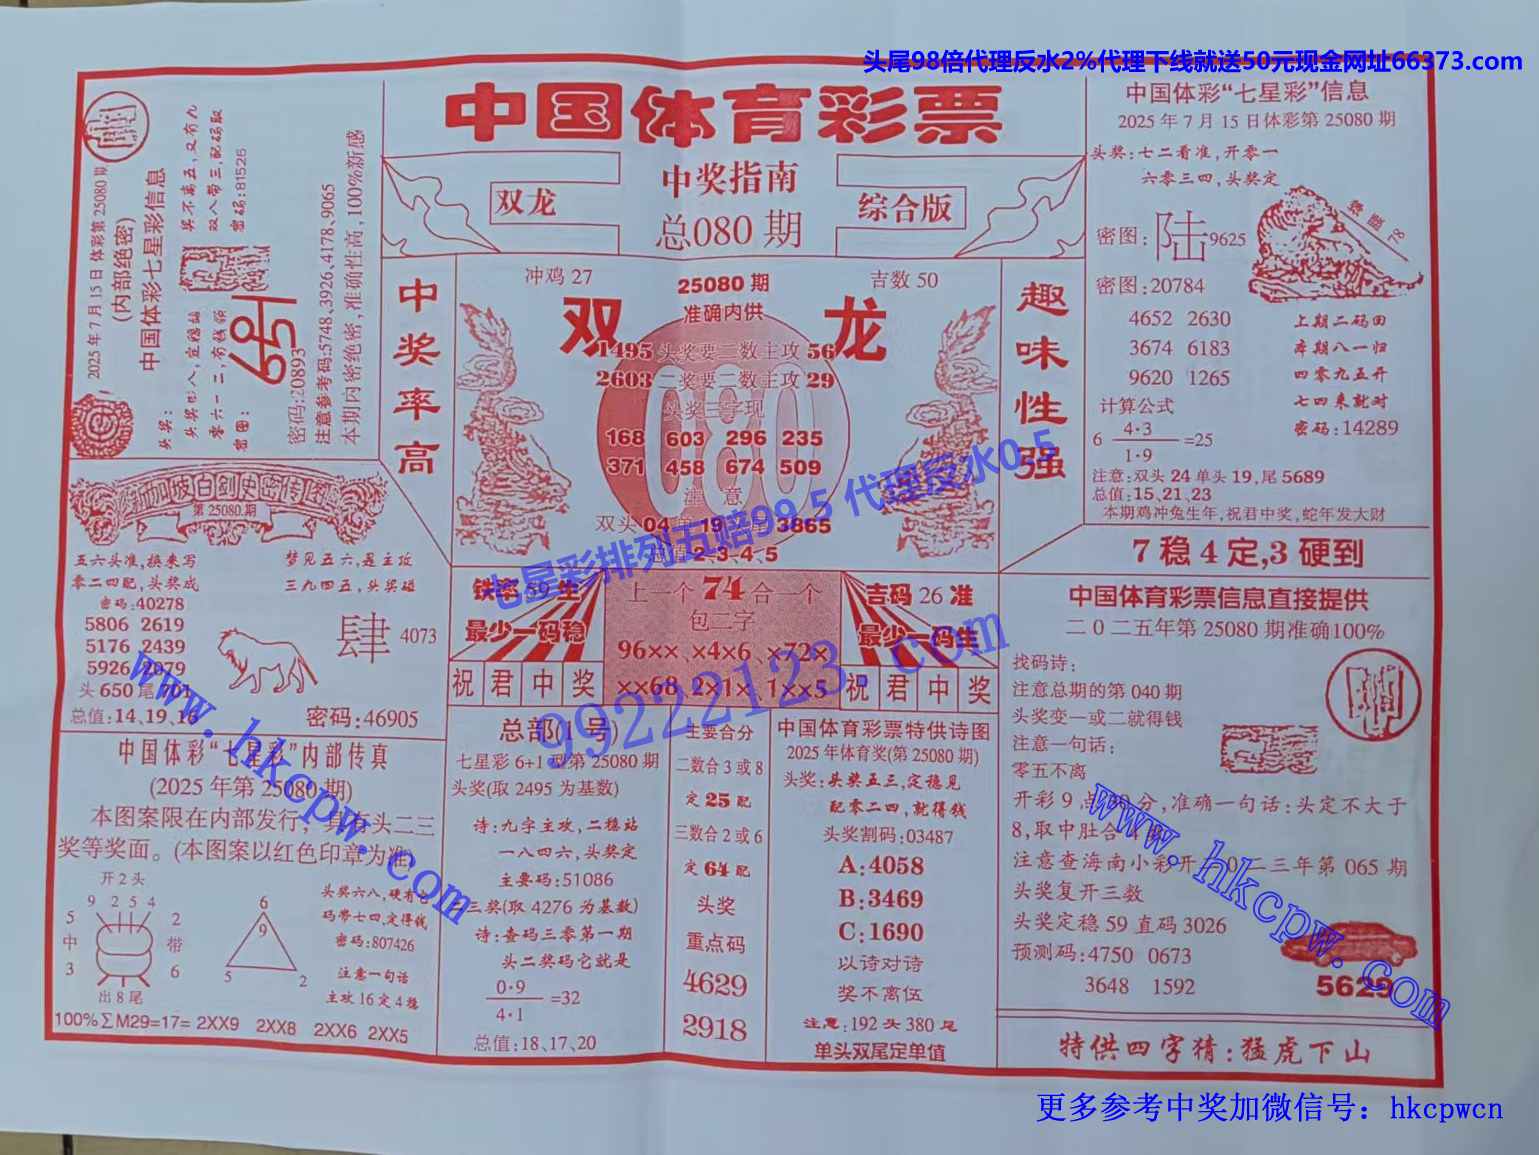 头尾98倍代理反水2%代理下线就送50元现金网址66373.com
中国体育彩票
中奖指南
双龙
综合版
总080期
2025年7月15日体彩第25080期
(内部绝密)
中国体彩七星彩信息
奖不离五,又有九
双八带三,配码取
密码:81525
头奖:
零六一二,有钱领
密图:
密码:20893
注意参考码:5748、3926、4178、9065
本期内密绝密,准确性高,100%新感
中奖率高
冲鸡27
25080期
吉数50
准确内供
双龙
1495头奖要二数主攻56
2603二奖要二数主攻29
头奖三字现
168 603 296 235
371 458 674 509
注意
双头04单19 3865
2、3、4、5
七星彩排列五赔99.5代理反水0.5
趣味性强
中国体彩“七星彩”信息
2025年7月15日体彩第25080期
头奖:七二看准,开零一
六零三四,头奖定
密图:陆9625
密图:20784
4652 2630
3674 6183
9620 1265
计算公式
6 4·3/1·9=25
上期二码田
本期八一归
四零九五开
七四来就对
密码:14289
注意:双头24单头19,尾5689
总值:15、21、23
本期鸡冲兔生年,祝君中奖,蛇年发大财
白剑史密传图
第25080期
五六头准,换来写
零二四配,头奖成
密码:40278
5806 2619
5176 2439
5926 2079
头650尾701
总值:14、19、16
梦见五六,是主攻
三九四五,头奖磁
肆4073
密码:46905
铁率59生
最少一码稳
祝君中奖
上一个74合一个
包二字
96××、×4×6、×72×
××68、2×1×、1××5
吉码26准
最少一码生
祝君中奖
7稳4定,3硬到
99222123.com
中国体彩“七星彩”内部传真
(2025年第25080期)
本图案限在内部发行,具有头二三
奖等奖面。(本图案以红色印章为准)
开2头
9 2 5 4
5 中 3
2 带 6
出8尾
6
9
5 2
头奖六八,硬有
码带七四,定得钱
密码:807426
注意一句话
主攻16定4稳
100%∑M29=17= 2XX9 2XX8 2XX6 2XX5
总部(1号)
七星彩6+1型第25080期
头奖(取2495为基数)
诗:九字主攻,二稳站
一八四六,头奖定
主要码:51086
二三奖(取4276为基数)
诗:查码三零第一期
头二奖码它就是
0·9/4·1=32
总值:18、17、20
主要合分
二数合3或8
定25配
三数合2或6
定64配
头奖
重点码
4629
2918
中国体育彩票特供诗图
2025年体育奖(第25080期)
头奖:头奖五三,定稳见
配零二四,就得钱
头奖割码:03487
A:4058
B:3469
C:1690
以诗对诗
奖不离伍
注意:192头380尾
单头双尾定单值
中国体育彩票信息直接提供
二0二五年第25080期准确100%
找码诗:
注意总期的第040期
头奖变一或二就得钱
注意一句话:
零五不离
开彩9点30分,准确一句话:头定不大于
8,取中肚合4
注意查海南小彩开二0二三年第065期
头奖复开三数
头奖定稳59直码3026
预测码:4750 0673
3648 1592
5629
特供四字猜:猛虎下山
www.hkcpw.com
www.hkcpw.com
更多参考中奖加微信号：hkcpwcn